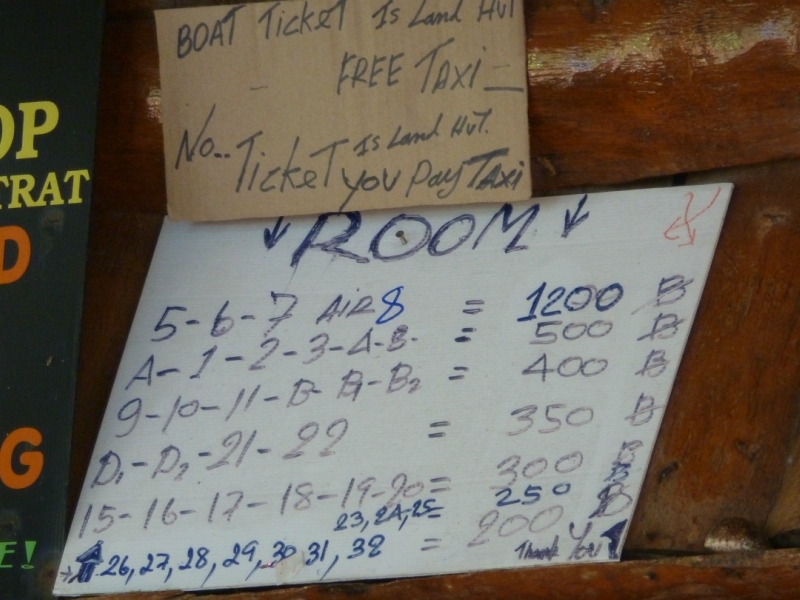 BOAT TICKET Is Land HUT
- FREE TAXI -
No.. TICKET Is Land HUT.
you Pay TAXI
OP
TRAT
D
G
E!
↓ ROOM ↓
5-6-7 AIR 8 = 1200 B
A-1-2-3-4-B- = 500 B
9-10-11-B-B1-B2 = 400 B
D1-D2-21-22 = 350 B
15-16-17-18-19-20= 300 B
23,24,25= 250 B
26,27,28,29,30 31,32 = 200 B
Thank You